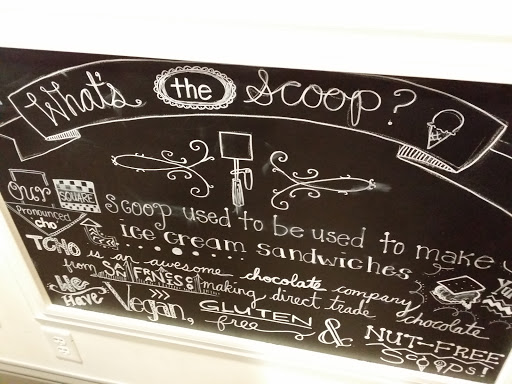 What's the Scoop?
Our SQUARE scoop used to be used to make
ice cream sandwiches
Pronounced cho
TCHO is an awesome chocolate company
from SAN FRANCISCO making direct trade chocolate
We Have Vegan, GLUTEN free & NUT-FREE Scoops!